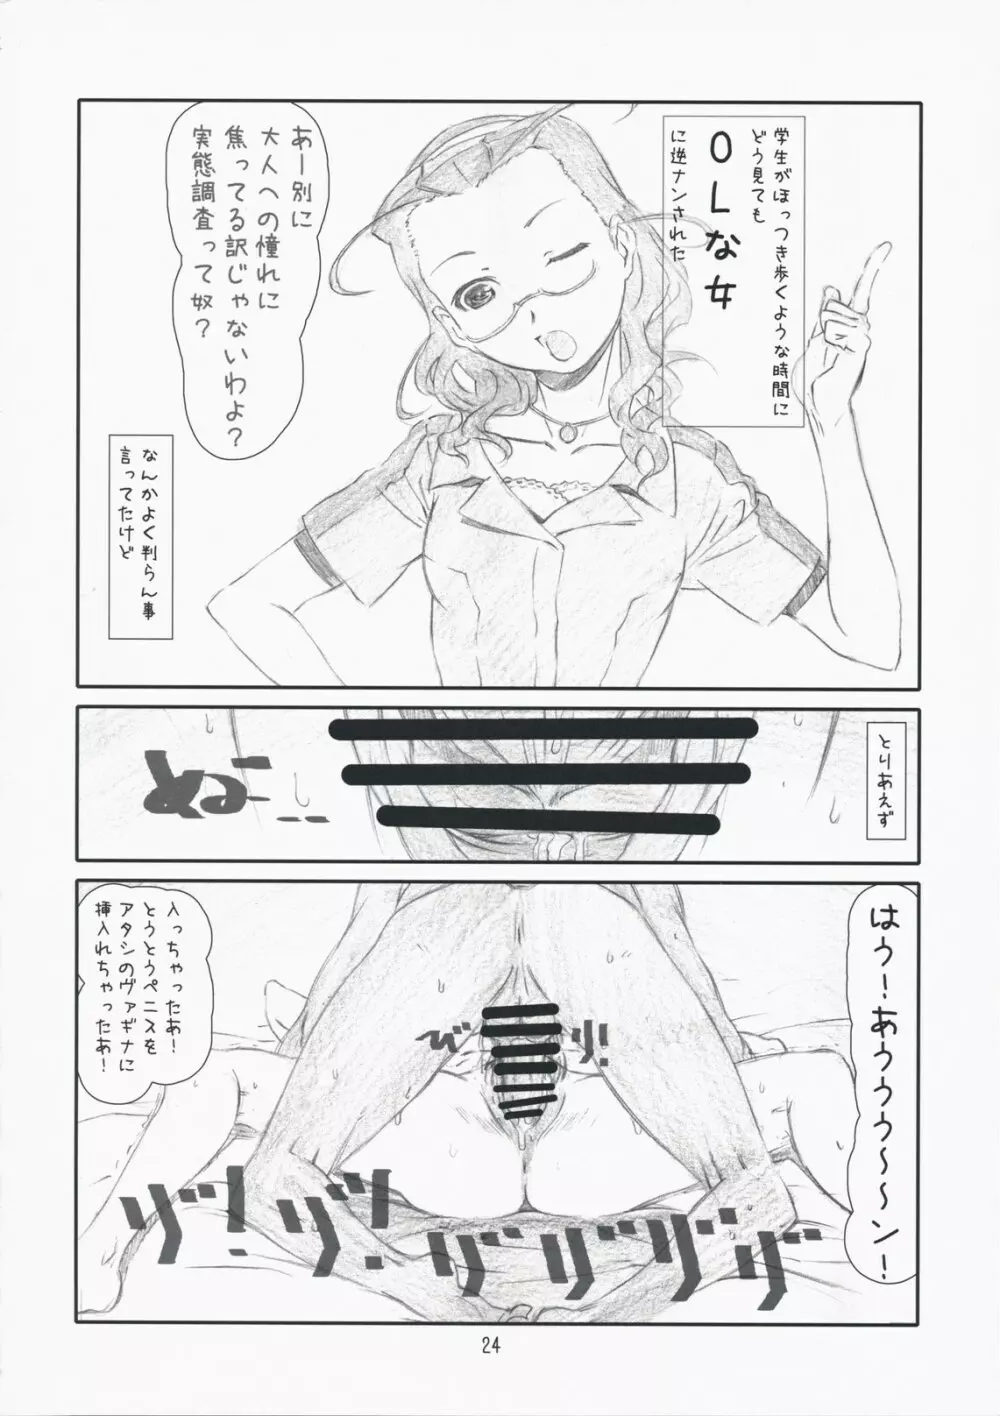 学生がほっつき歩くような時間に
どう見ても
OLな女
に逆ナンされた
あー別に
大人への憧れに
焦ってる訳じゃないわよ？
実態調査って奴？
なんかよく判らん事
言ってたけど
とりあえず
ぬこ
はうーあううう～～ン！
入っちゃったあ！
とうとうペニスを
アタシのヴァギナに
挿入れちゃったあ！
24